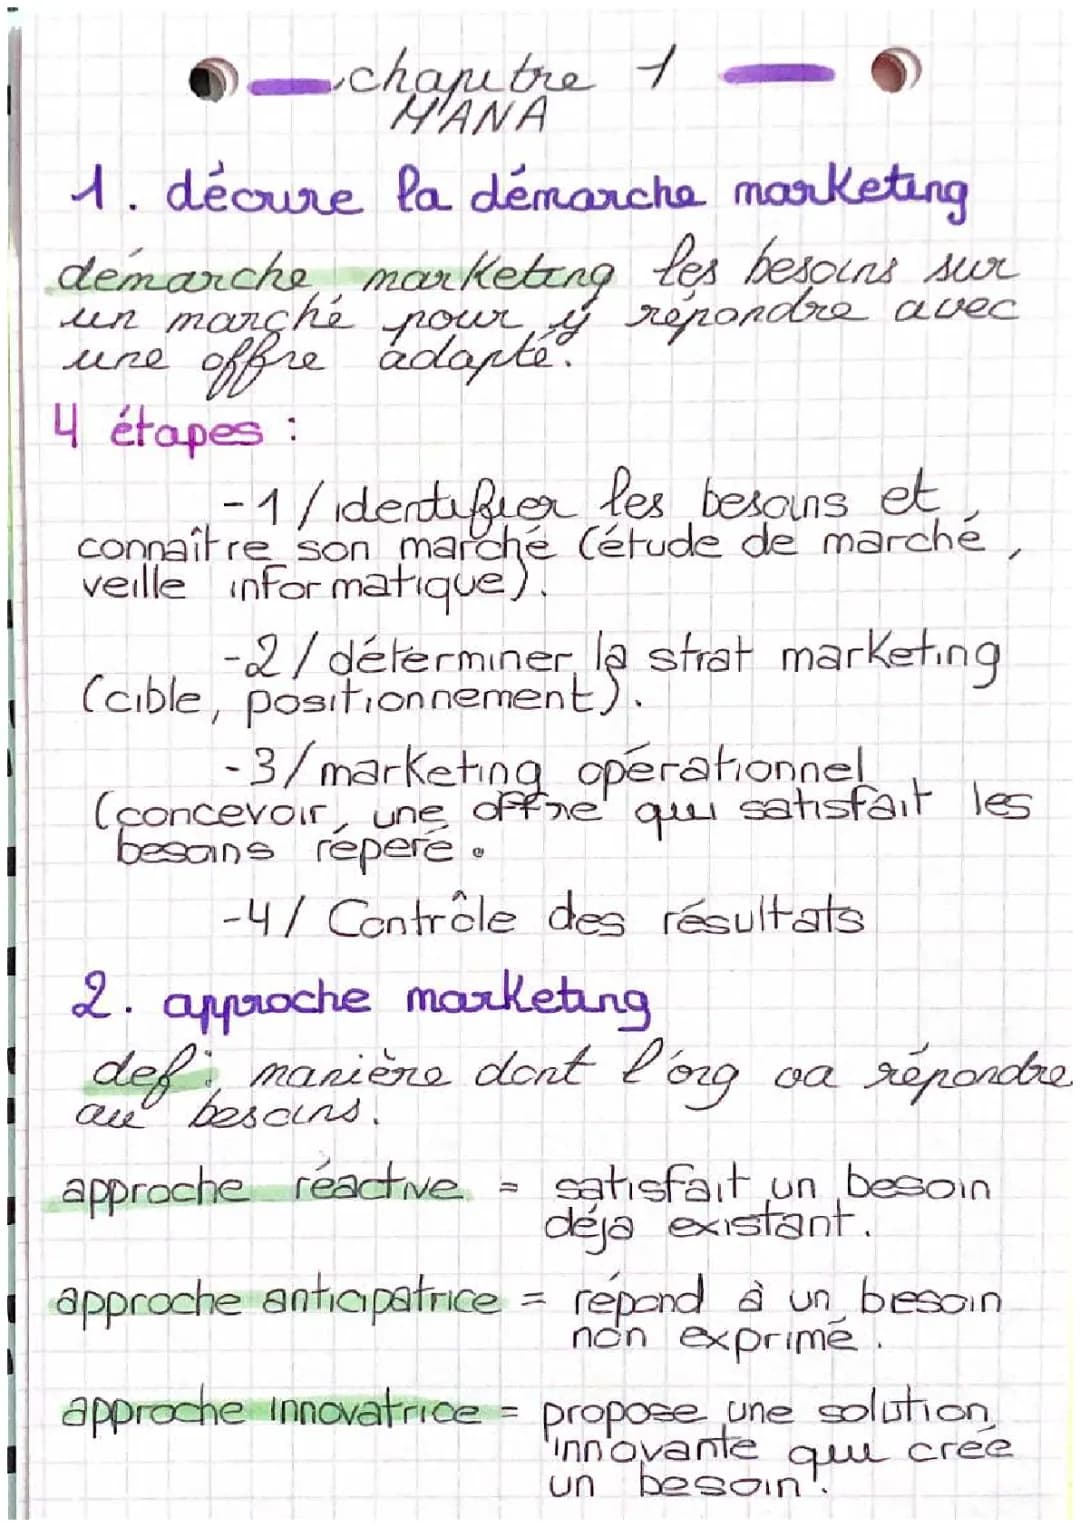 chapitre 1
MANA
1. décrire la démarche marketing
démarche marketing les besoins sur
un marché pour y répondre avec
une offre adapté.
4 étapes :
-1/ identifier les besoins et
connaître son marché (étude de marché,
veille informatique).
-2/ déterminer la strat marketing
(cible, positionnement).
-3/ marketing opérationnel
(concevoir une offre qui satisfait les
besoins répéré.
-4/ Contrôle des résultats
2. approche marketing
def : manière dont l'org va répondre
au besoins.
approche réactive = satisfait un besoin
déja existant.
approche anticipatrice = répond à un besoin
non exprimé.
approche innovatrice = propose une solution
innovante qui créé
un besoin.